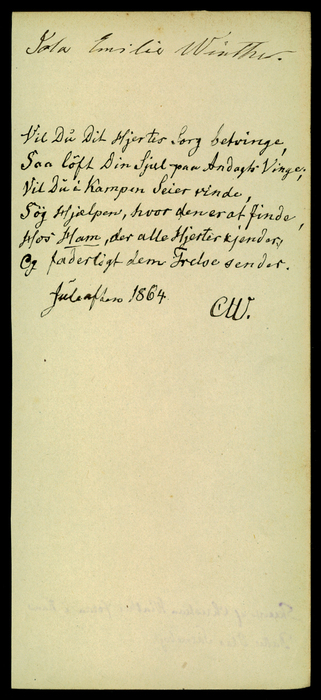 Ida Emilie Winther.
Vil Du Dit Hjertes Sorg betvinge,
Saa löft Din Sjul paa Andagts Vinge;
Vil Du i Kampen Seier vinde,
Søg Hjælpen, hvor den er at finde,
Hos Ham, der alle Hjerter kjender,
Og faderligt dem Frelse sender.
Juleaften 1864
CW.